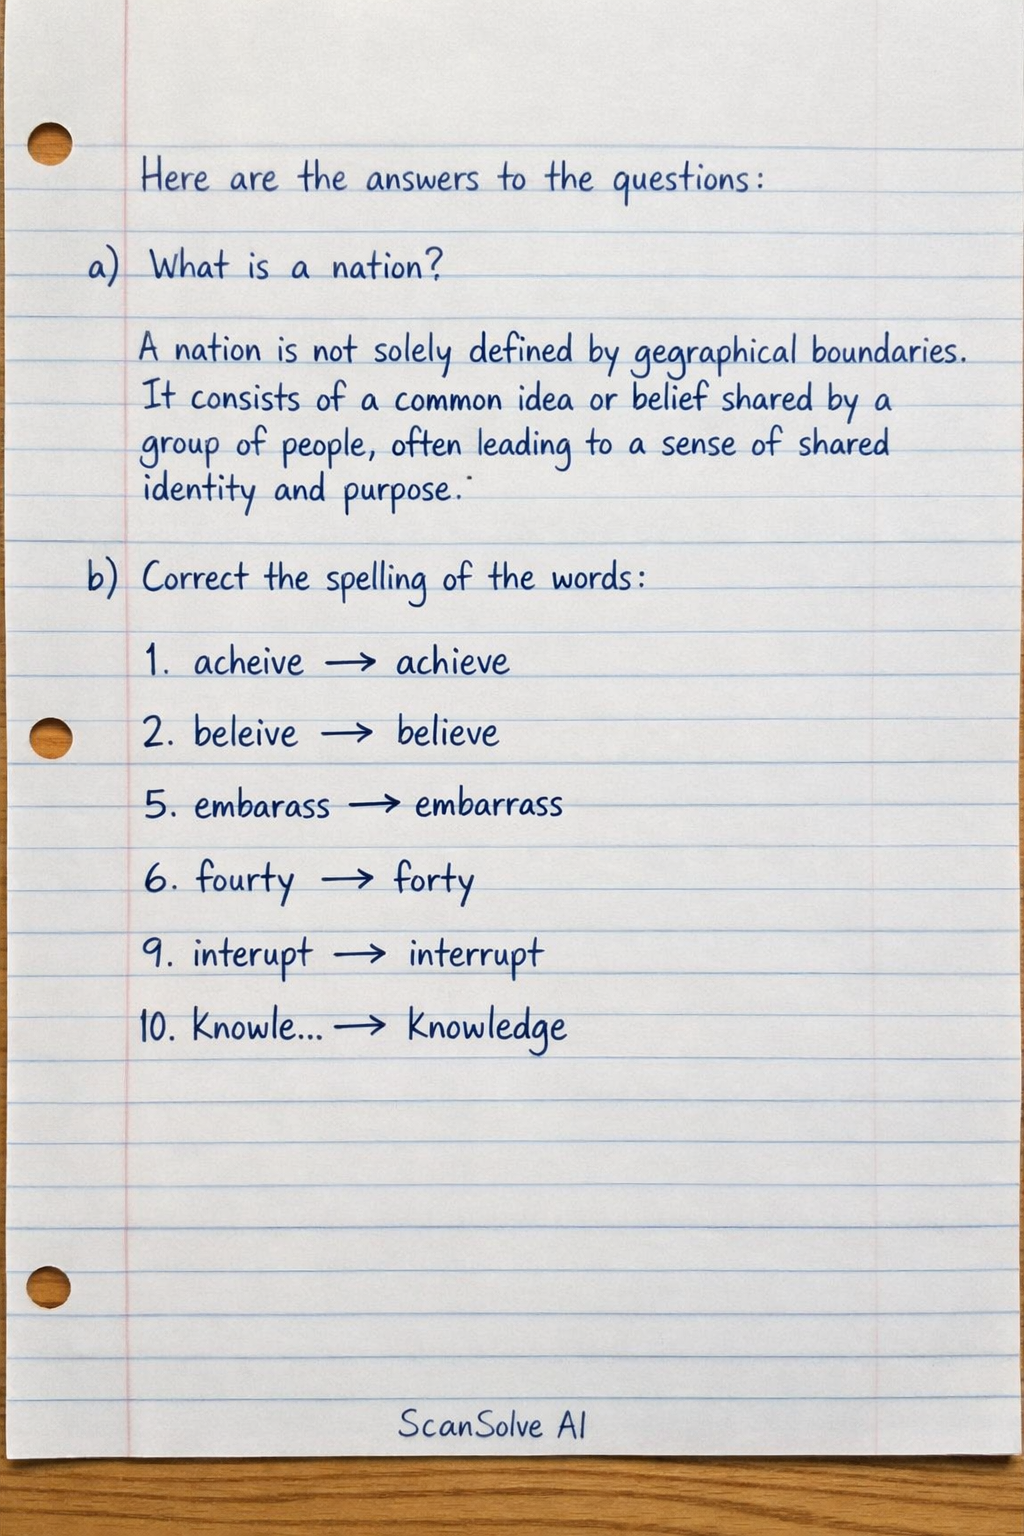 Here are the answers to the questions:
a) What is a nation?
A nation is not solely defined by gegraphical boundaries.
It consists of a common idea or belief shared by a
group of people, often leading to a sense of shared
identity and purpose.
b) Correct the spelling of the words:
1. acheive → achieve
2. beleive → believe
5. embarass → embarrass
6. fourty → forty
9. interupt → interrupt
10. Knowle... → Knowledge
ScanSolve AI